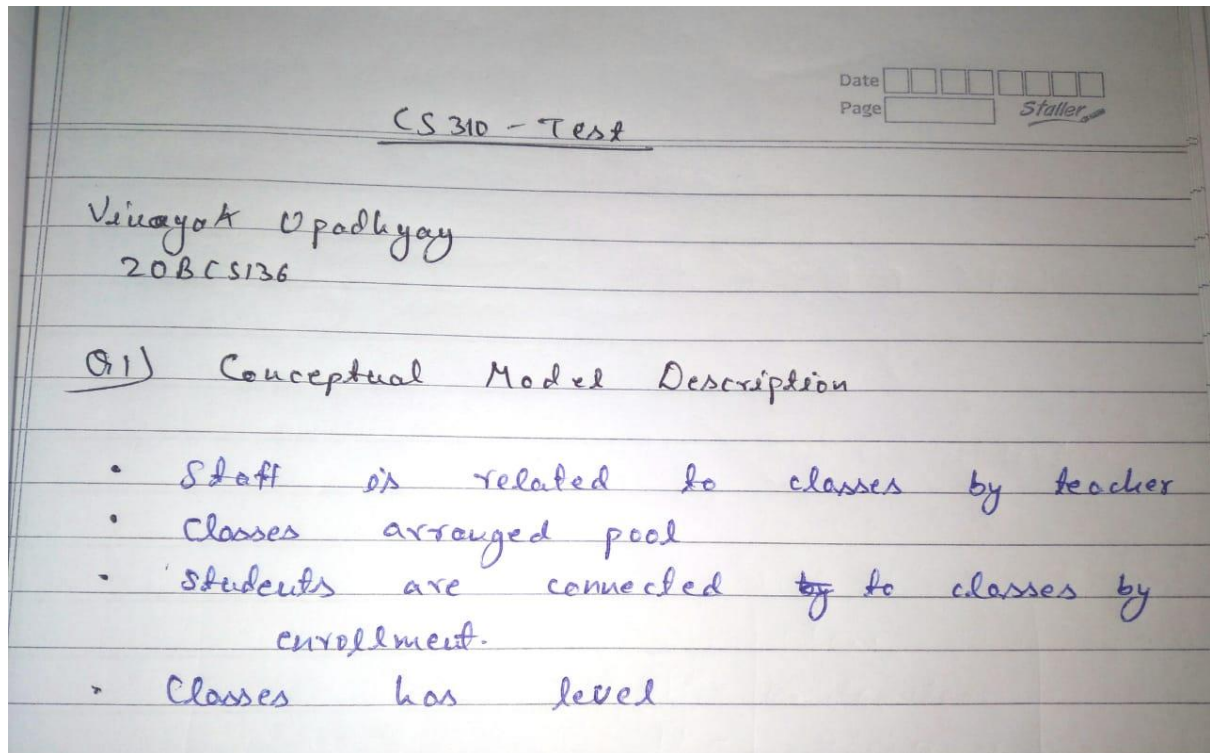 Date
Page Staller
CS 310 - Test
Vinayak Upadhyay
20BCS136
Q1) Conceptual Model Description
• Staff is related to classes by teacher
• Classes arranged pool
• Students are connected by to classes by
enrollment.
• Classes has level